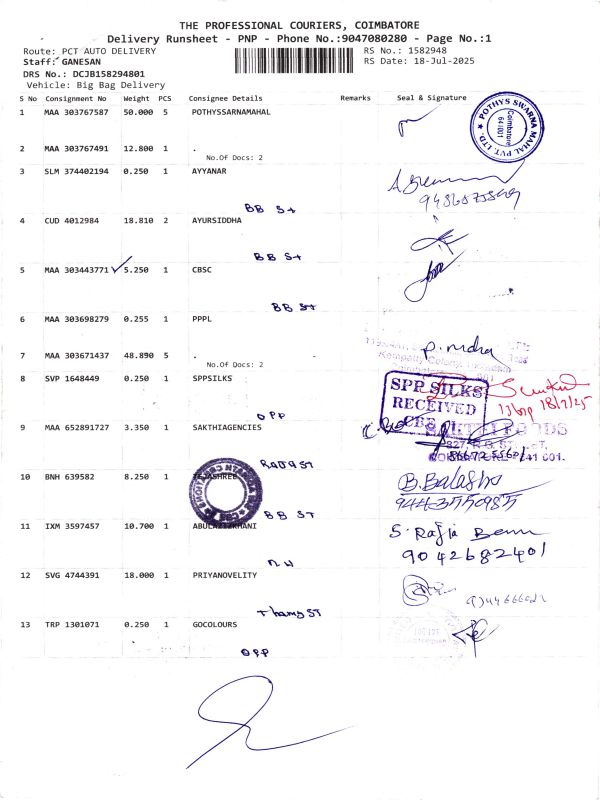 THE PROFESSIONAL COURIERS, COIMBATORE
Delivery Runsheet - PNP - Phone No.:9047080280 - Page No.:1
Route: PCT AUTO DELIVERY
RS No.: 1582948
Staff: GANESAN
RS Date: 18-Jul-2025
DRS No.: DCJB158294801
Vehicle: Big Bag Delivery
S No Consignment No Weight PCS Consignee Details Remarks Seal & Signature
1 MAA 303767587 50.000 5 POTHYSSARNAMAHAL
POTHYS SWARNA MAHAL PVT. LTD.
Coimbatore
641001
2 MAA 303767491 12.800 1 .
No.Of Docs: 2
3 SLM 374402194 0.250 1 AYYANAR
BB St
4 CUD 4012984 18.810 2 AYURSIDDHA
BB St
5 MAA 303443771 5.250 1 CBSC
BB St
6 MAA 303698279 0.255 1 PPPL
7 MAA 303671437 48.890 5 .
No.Of Docs: 2
8 SVP 1648449 0.250 1 SPPSILKS
SPP SILKS
RECEIVED
CBE
18/7/25
OPP
9 MAA 652891727 3.350 1 SAKTHIAGENCIES
10 BNH 639582 8.250 1
B. Balasho
BB ST
11 IXM 3597457 10.700 1 ABULAZIZKHANI
S. Rajia Benu
9042682401
12 SVG 4744391 18.000 1 PRIYANOVELITY
13 TRP 1301071 0.250 1 GOCOLOURS
OPP